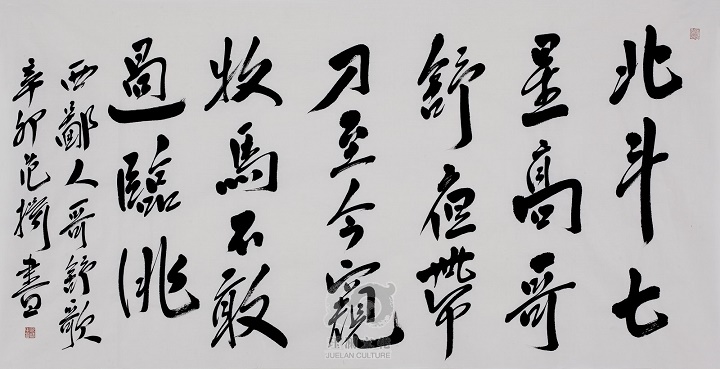 北斗七
星高哥
舒夜帶
刀至今窺
牧馬不敢
過臨洮
西鄙人哥舒歌
辛卯范書
JUELAN CULTURE